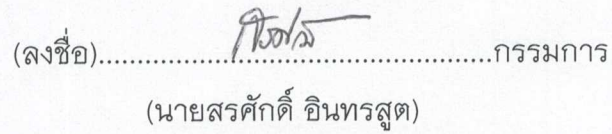 (ลงชื่อ)..................................................กรรมการ
(นายสรศักดิ์ อินทรสูต)